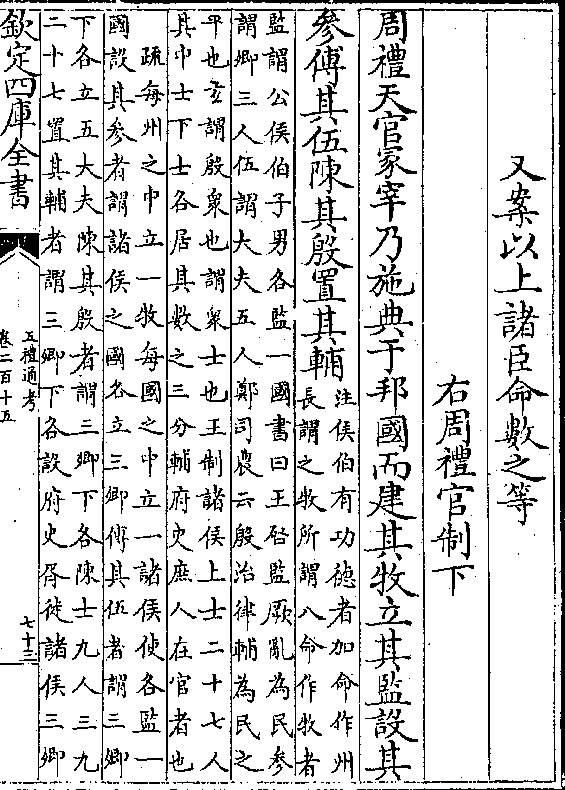 又案以上諸臣命數之等
右周禮官制下
周禮天官冢宰乃施典于邦國而建其牧立其監設其
參傅其伍陳其殷置其輔
注侯伯有功德者加命作州
長謂之牧所謂八命作牧者
監謂公侯伯子男各監一國書曰王啓監厥亂為民參
謂卿三人伍謂大夫五人鄭司農云殷治律輔為民之
平也玄謂殷衆也謂衆士也王制諸侯上士二十七人
其中士下士各居其數之三分輔府史庶人在官者也
疏每州之中立一牧每國之中立一諸侯使各監一
國設其參者謂諸侯之國各立三卿傅其伍者謂三卿
下各立五大夫陳其殷者謂三卿下各陳士九人三九
二十七置其輔者謂三卿下各設府史胥徒諸侯三卿
欽定四庫全書
五禮通考
卷二百十五
七十三